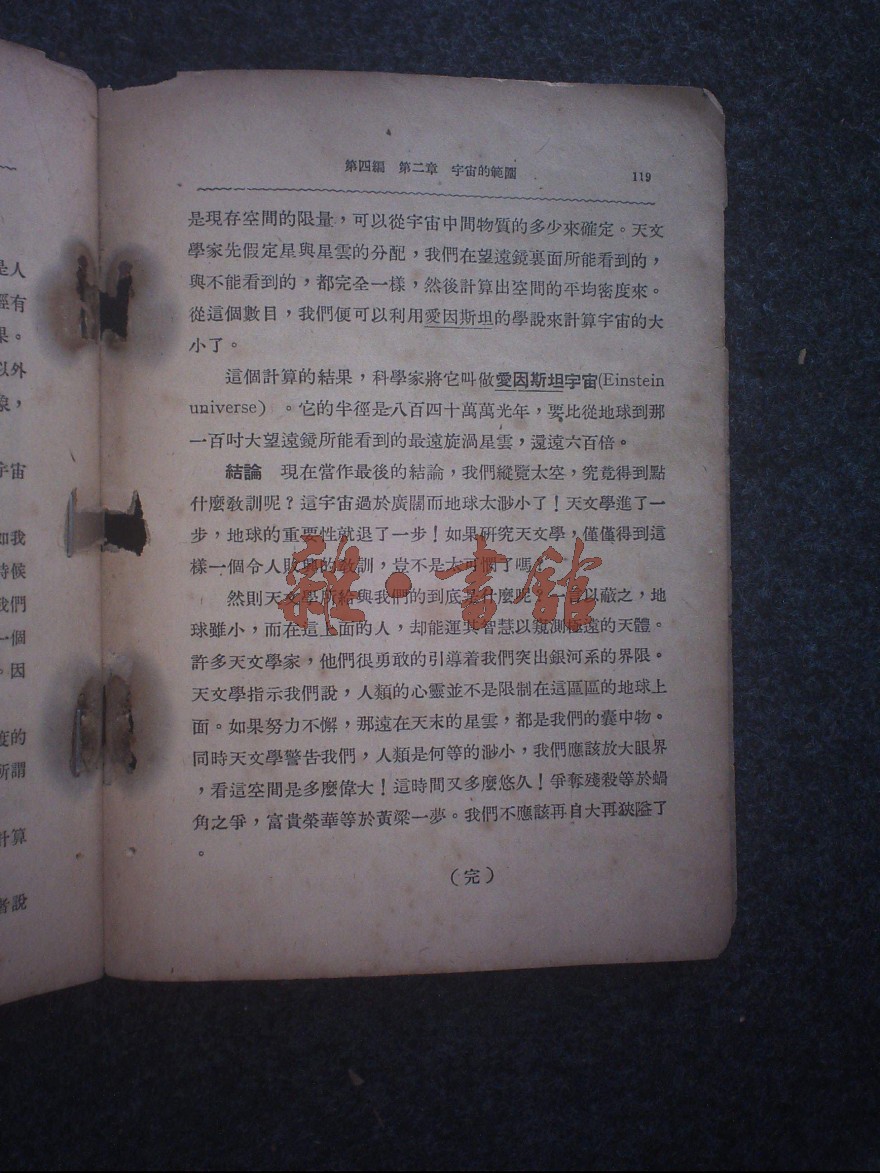 第四編　第二章　宇宙的範圍
119
是現存空間的限量，可以從宇宙中間物質的多少來確定。天文
學家先假定星與星雲的分配，我們在望遠鏡裏面所能看到的，
與不能看到的，都完全一樣，然後計算出空間的平均密度來。
從這個數目，我們便可以利用愛因斯坦的學說來計算宇宙的大
小了。
這個計算的結果，科學家將它叫做愛因斯坦宇宙(Einstein
universe) 。它的半徑是八百四十萬萬光年，要比從地球到那
一百吋大望遠鏡所能看到的最遠旋渦星雲，還遠六百倍。
結論　現在當作最後的結論，我們縱覽太空，究竟得到點
什麼敎訓呢？這宇宙過於廣闊而地球太渺小了！天文學進了一
步，地球的重要性就退了一步！如果研究天文學，僅僅得到這
樣一個令人敗興的敎訓，豈不是太可憫了嗎
然則天文學所給與我們的到底是什麼呢？一言以蔽之，地
球雖小，而在這上面的人，却能運其智慧以窺測極遠的天體。
許多天文學家，他們很勇敢的引導着我們突出銀河系的界限。
天文學指示我們說，人類的心靈並不是限制在這區區的地球上
面。如果努力不懈，那遠在天末的星雲，都是我們的囊中物。
同時天文學警告我們，人類是何等的渺小，我們應該放大眼界
，看這空間是多麼偉大！這時間又多麼悠久！爭奪殘殺等於蝸
角之爭，富貴榮華等於黃粱一夢。我們不應該再自大再狹隘了
。
（完）
雜·書館
是人
徑有
果。
以外
象，
宇宙
如我
時候
我們
一個
。因
度的
所謂
計算
者說